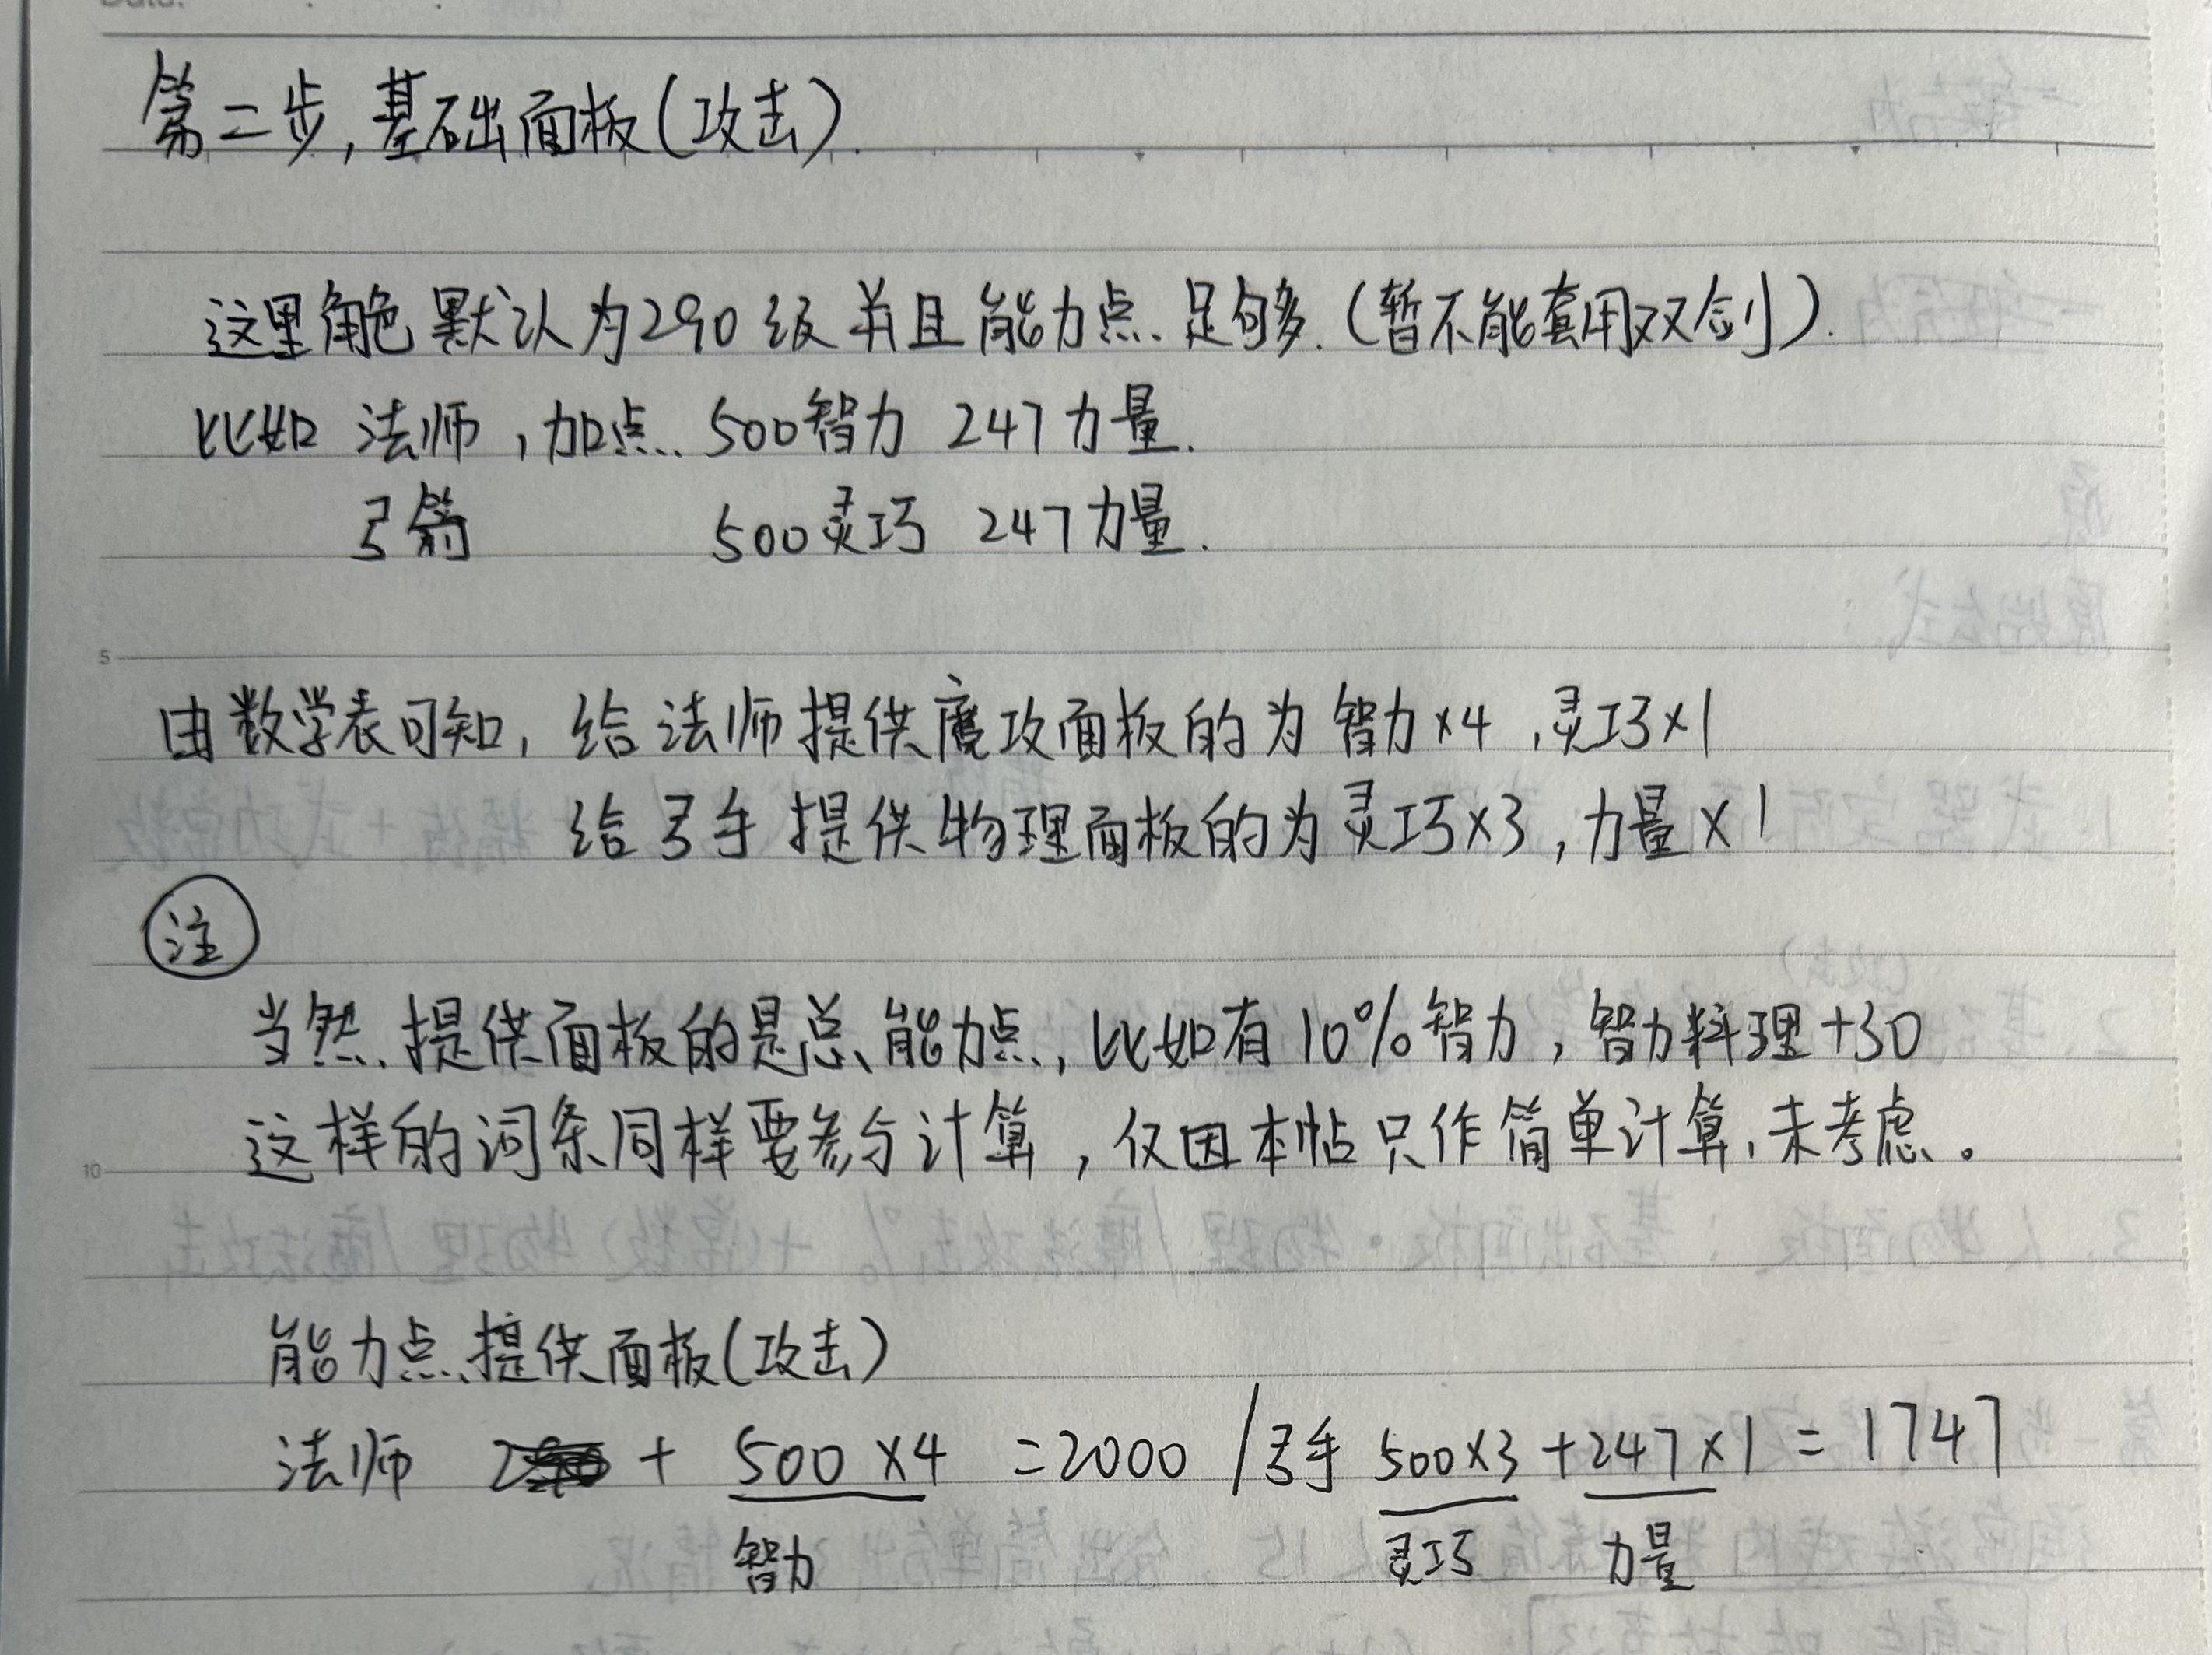 第二步,基础面板(攻击).
这里角色默认为290级并且能力点足够多.(暂不能套用双剑).
比如 法师,加点.. 500智力 247力量.
弓箭 500灵巧 247力量.
5
由数学表可知, 给法师提供魔攻面板的为智力×4,灵巧×1
给弓手提供物理面板的为灵巧×3,力量×1
注
当然,提供面板的是总能力点,比如有10%智力,智力料理+30
这样的词条同样要参与计算,仅因本帖只作简单计算,未考虑。
10
能力点提供面板(攻击)
法师 + 500×4 =2000 /弓手 500×3+247×1=1747
智力 灵巧 力量